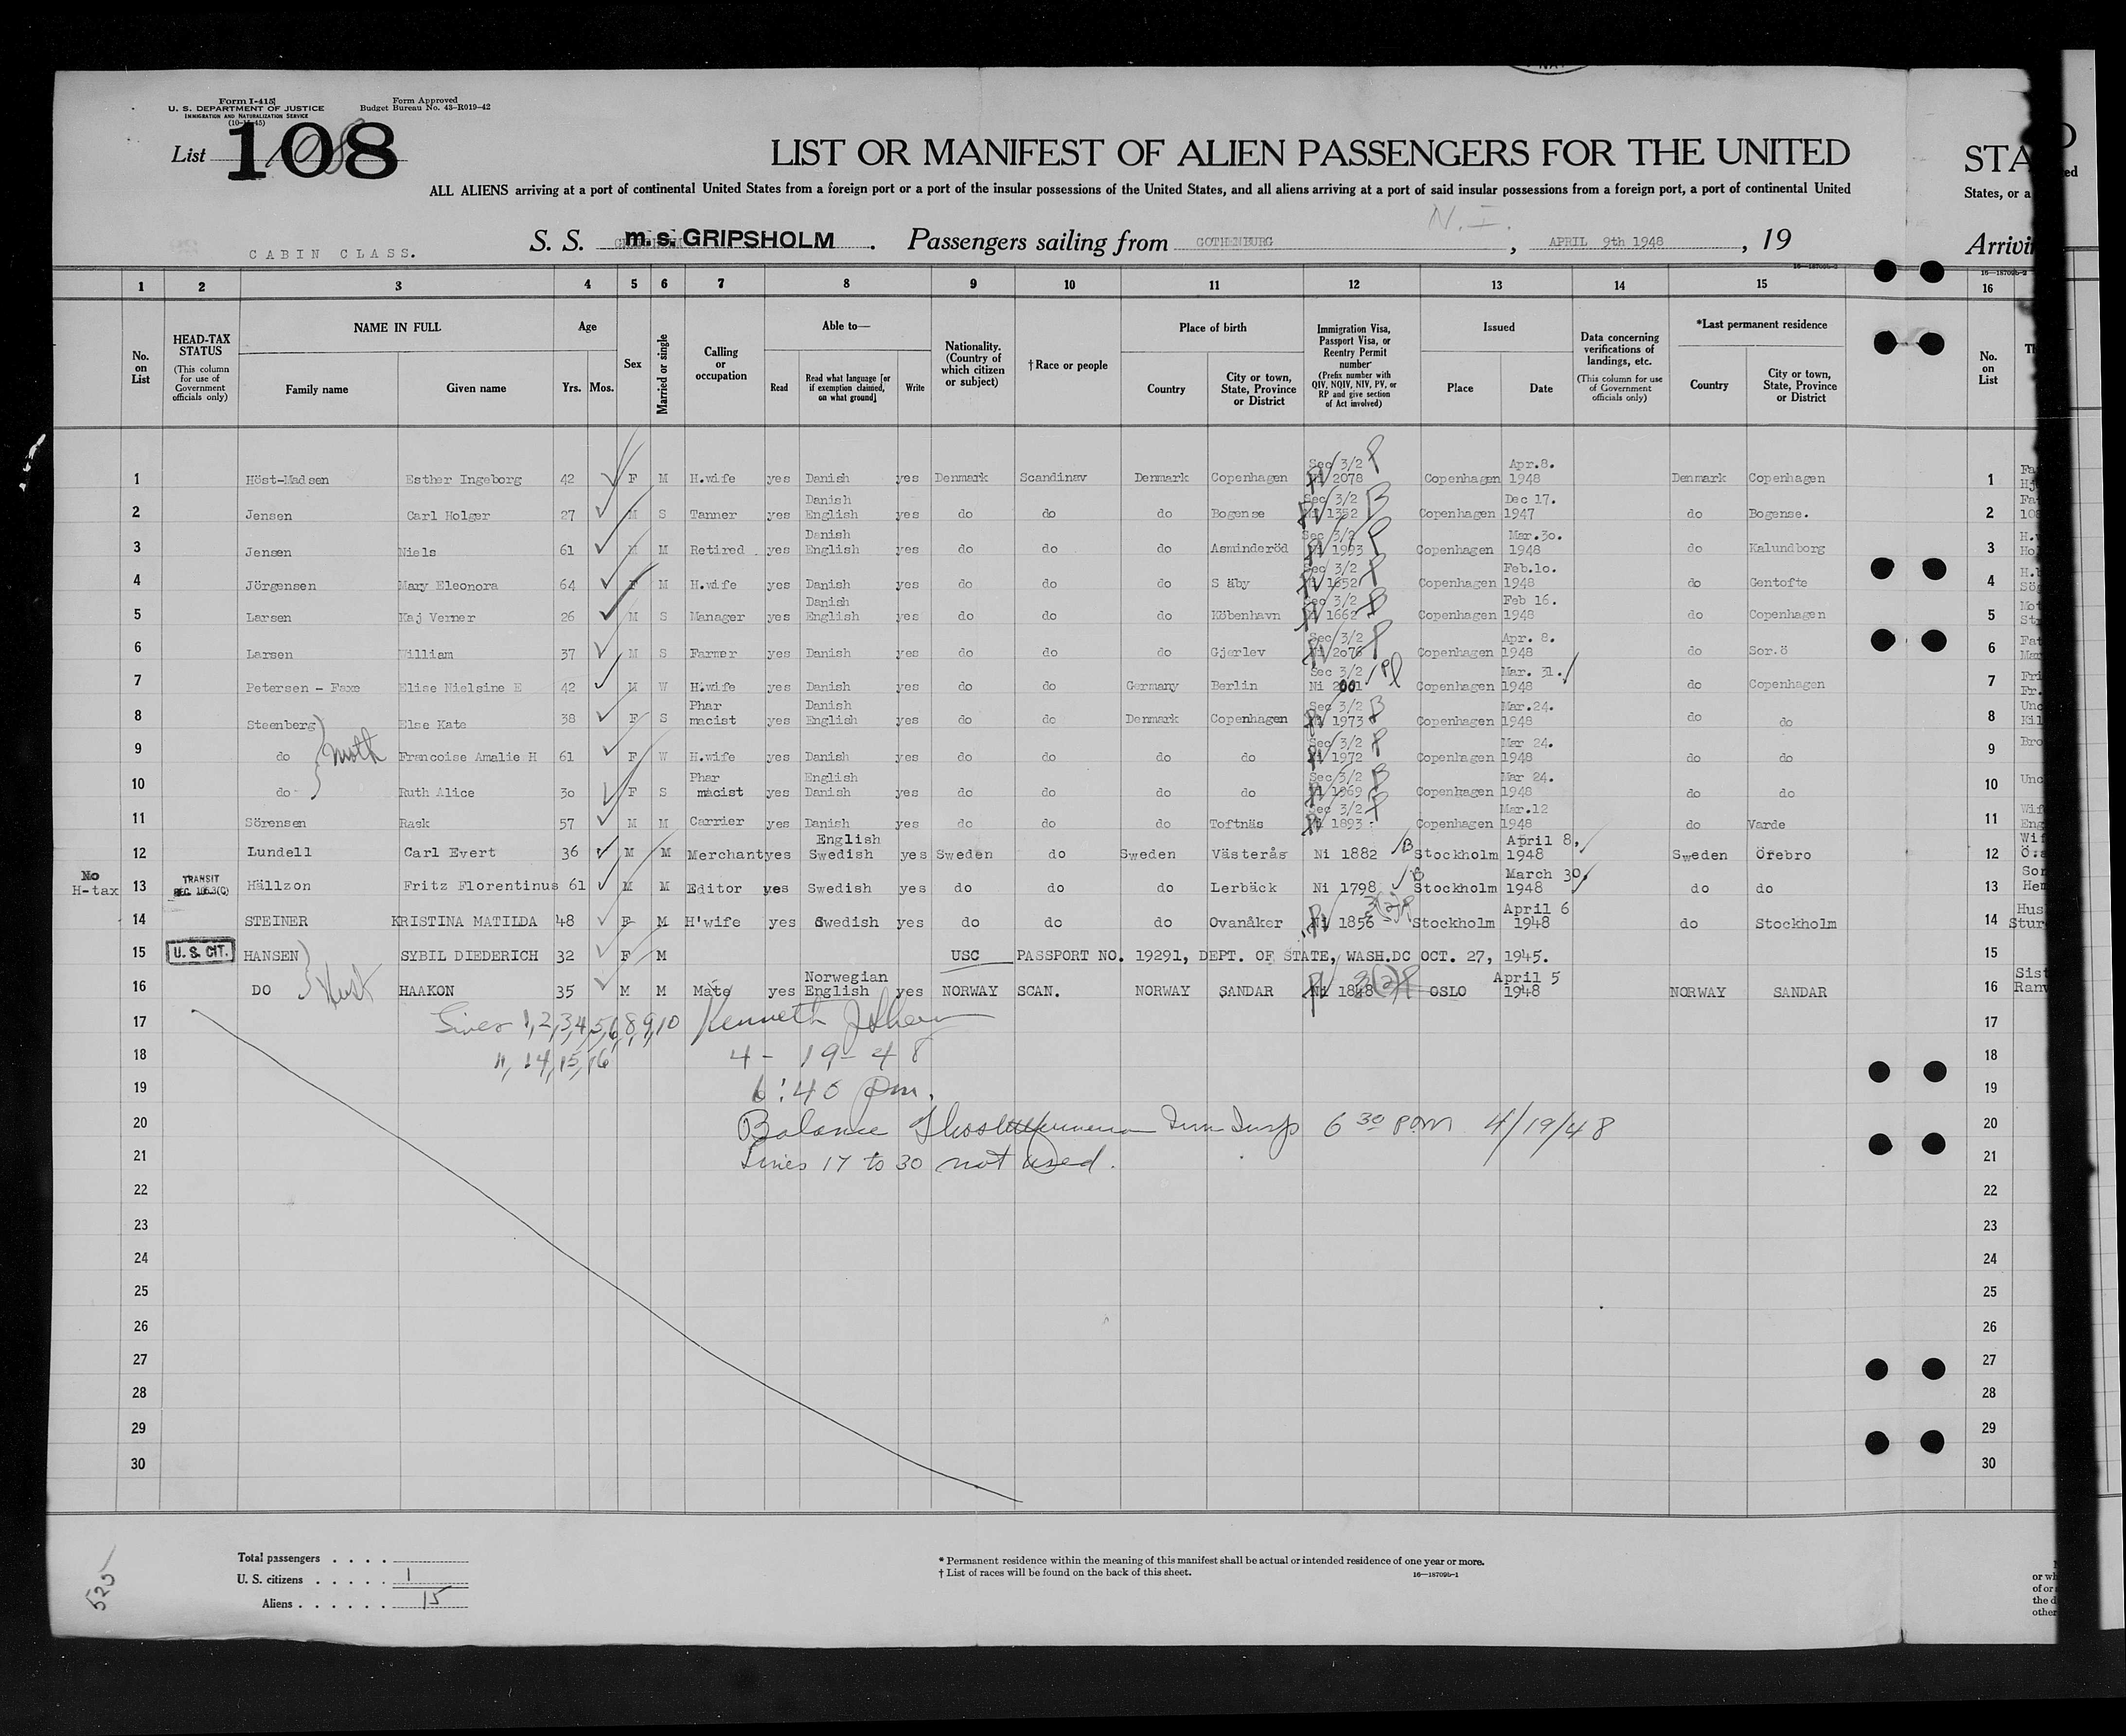 Form I-415
U. S. DEPARTMENT OF JUSTICE
IMMIGRATION AND NATURALIZATION SERVICE
Form Approved
Budget Bureau No. 43-R019-42
List 108
LIST OR MANIFEST OF ALIEN PASSENGERS FOR THE UNITED
STA
ALL ALIENS arriving at a port of continental United States from a foreign port or a port of the insular possessions of the United States, and all aliens arriving at a port of said insular possessions from a foreign port, a port of continental United
States, or a
N. I.
CABIN CLASS.
S. S. m. s. GRIPSHOLM . Passengers sailing from GOTHENBURG , APRIL 9th 1948 , 19
Arrivi
16—18709b-2
1 2 3 4 5 6 7 8 9 10 11 12 13 14 15 16
No. on List
HEAD-TAX STATUS (This column for use of Government officials only)
NAME IN FULL
Family name Given name
Age
Yrs. Mos.
Sex
Married or single
Calling or occupation
Able to—
Read Read what language [or if exemption claimed, on what ground] Write
Nationality. (Country of which citizen or subject)
† Race or people
Place of birth
Country City or town, State, Province or District
Immigration Visa, Passport Visa, or Reentry Permit number (Prefix number with QIV, NQIV, NIV, PV, or RP and give section of Act involved)
Issued
Place Date
Data concerning verifications of landings, etc. (This column for use of Government officials only)
*Last permanent residence
Country City or town, State, Province or District
No. on List
1 Höst-Madsen Esther Ingeborg 42 F M H.wife yes Danish yes Denmark Scandinav Denmark Copenhagen Sec 3/2 2078 Copenhagen Apr.8. 1948 Denmark Copenhagen 1
2 Jensen Carl Holger 27 M S Tanner yes Danish English yes do do do Bogense Sec 3/2 1352 Copenhagen Dec 17. 1947 do Bogense. 2
3 Jensen Niels 61 M M Retired yes Danish English yes do do do Asminderöd Sec 3/2 1993 Copenhagen Mar.30. 1948 do Kalundborg 3
4 Jörgensen Mary Eleonora 64 F M H.wife yes Danish yes do do do S äby Sec 3/2 1652 Copenhagen Feb.10. 1948 do Gentofte 4
5 Larsen Kaj Verner 26 M S Manager yes Danish English yes do do do Köbenhavn Sec 3/2 1662 Copenhagen Feb 16. 1948 do Copenhagen 5
6 Larsen William 37 M S Farmer yes Danish yes do do do Gjerlev Sec 3/2 2076 Copenhagen Apr. 8. 1948 do Sor.ö 6
7 Petersen - Faxe Elise Nielsine E 42 M W H.wife yes Danish yes do do Germany Berlin Sec 3/2 Ni 2001 Copenhagen Mar. 31. 1948 do Copenhagen 7
8 Steenberg Else Kate 38 F S Phar macist yes Danish English yes do do Denmark Copenhagen Sec 3/2 1973 Copenhagen Mar.24. 1948 do do 8
9 do Moth Francoise Amalie H 61 F W H.wife yes Danish yes do do do do Sec 3/2 1972 Copenhagen Mar 24. 1948 do do 9
10 do Ruth Alice 30 F S Phar macist yes English Danish yes do do do do Sec 3/2 1969 Copenhagen Mar 24. 1948 do do 10
11 Sörensen Rask 57 M M Carrier yes Danish yes do do do Toftnäs Sec 3/2 1893 Copenhagen Mar.12 1948 do Varde 11
12 Lundell Carl Evert 36 M M Merchant yes English Swedish yes Sweden do Sweden Västerås Ni 1882 B Stockholm April 8, 1948 Sweden Örebro 12
No H-tax 13 TRANSIT Hällzon Fritz Florentinus 61 M M Editor yes Swedish yes do do do Lerbäck Ni 1798 B Stockholm March 30, 1948 do do 13
14 STEINER KRISTINA MATILDA 48 F M H'wife yes Swedish yes do do do Ovanåker Ni 1856 Stockholm April 6 1948 do Stockholm 14
15 U. S. CIT. HANSEN SYBIL DIEDERICH 32 F M USC PASSPORT NO. 19291, DEPT. OF STATE, WASH.DC OCT. 27, 1945. 15
16 DO Hust HAAKON 35 M M Mate yes Norwegian English yes NORWAY SCAN. NORWAY SANDAR Ni 1848 3(2)P OSLO April 5 1948 NORWAY SANDAR 16
17 Lines 1,2,3,4,5,6,8,9,10 Kenneth 17
18 11, 14, 15, 16 4 - 19 - 48 18
19 6:40 pm. 19
20 Balance 6 30 pm 4/19/48 20
21 Lines 17 to 30 not used. 21
22 22
23 23
24 24
25 25
26 26
27 27
28 28
29 29
30 30
Total passengers
U. S. citizens 1
Aliens 15
525
* Permanent residence within the meaning of this manifest shall be actual or intended residence of one year or more.
† List of races will be found on the back of this sheet.
16—18709b-1